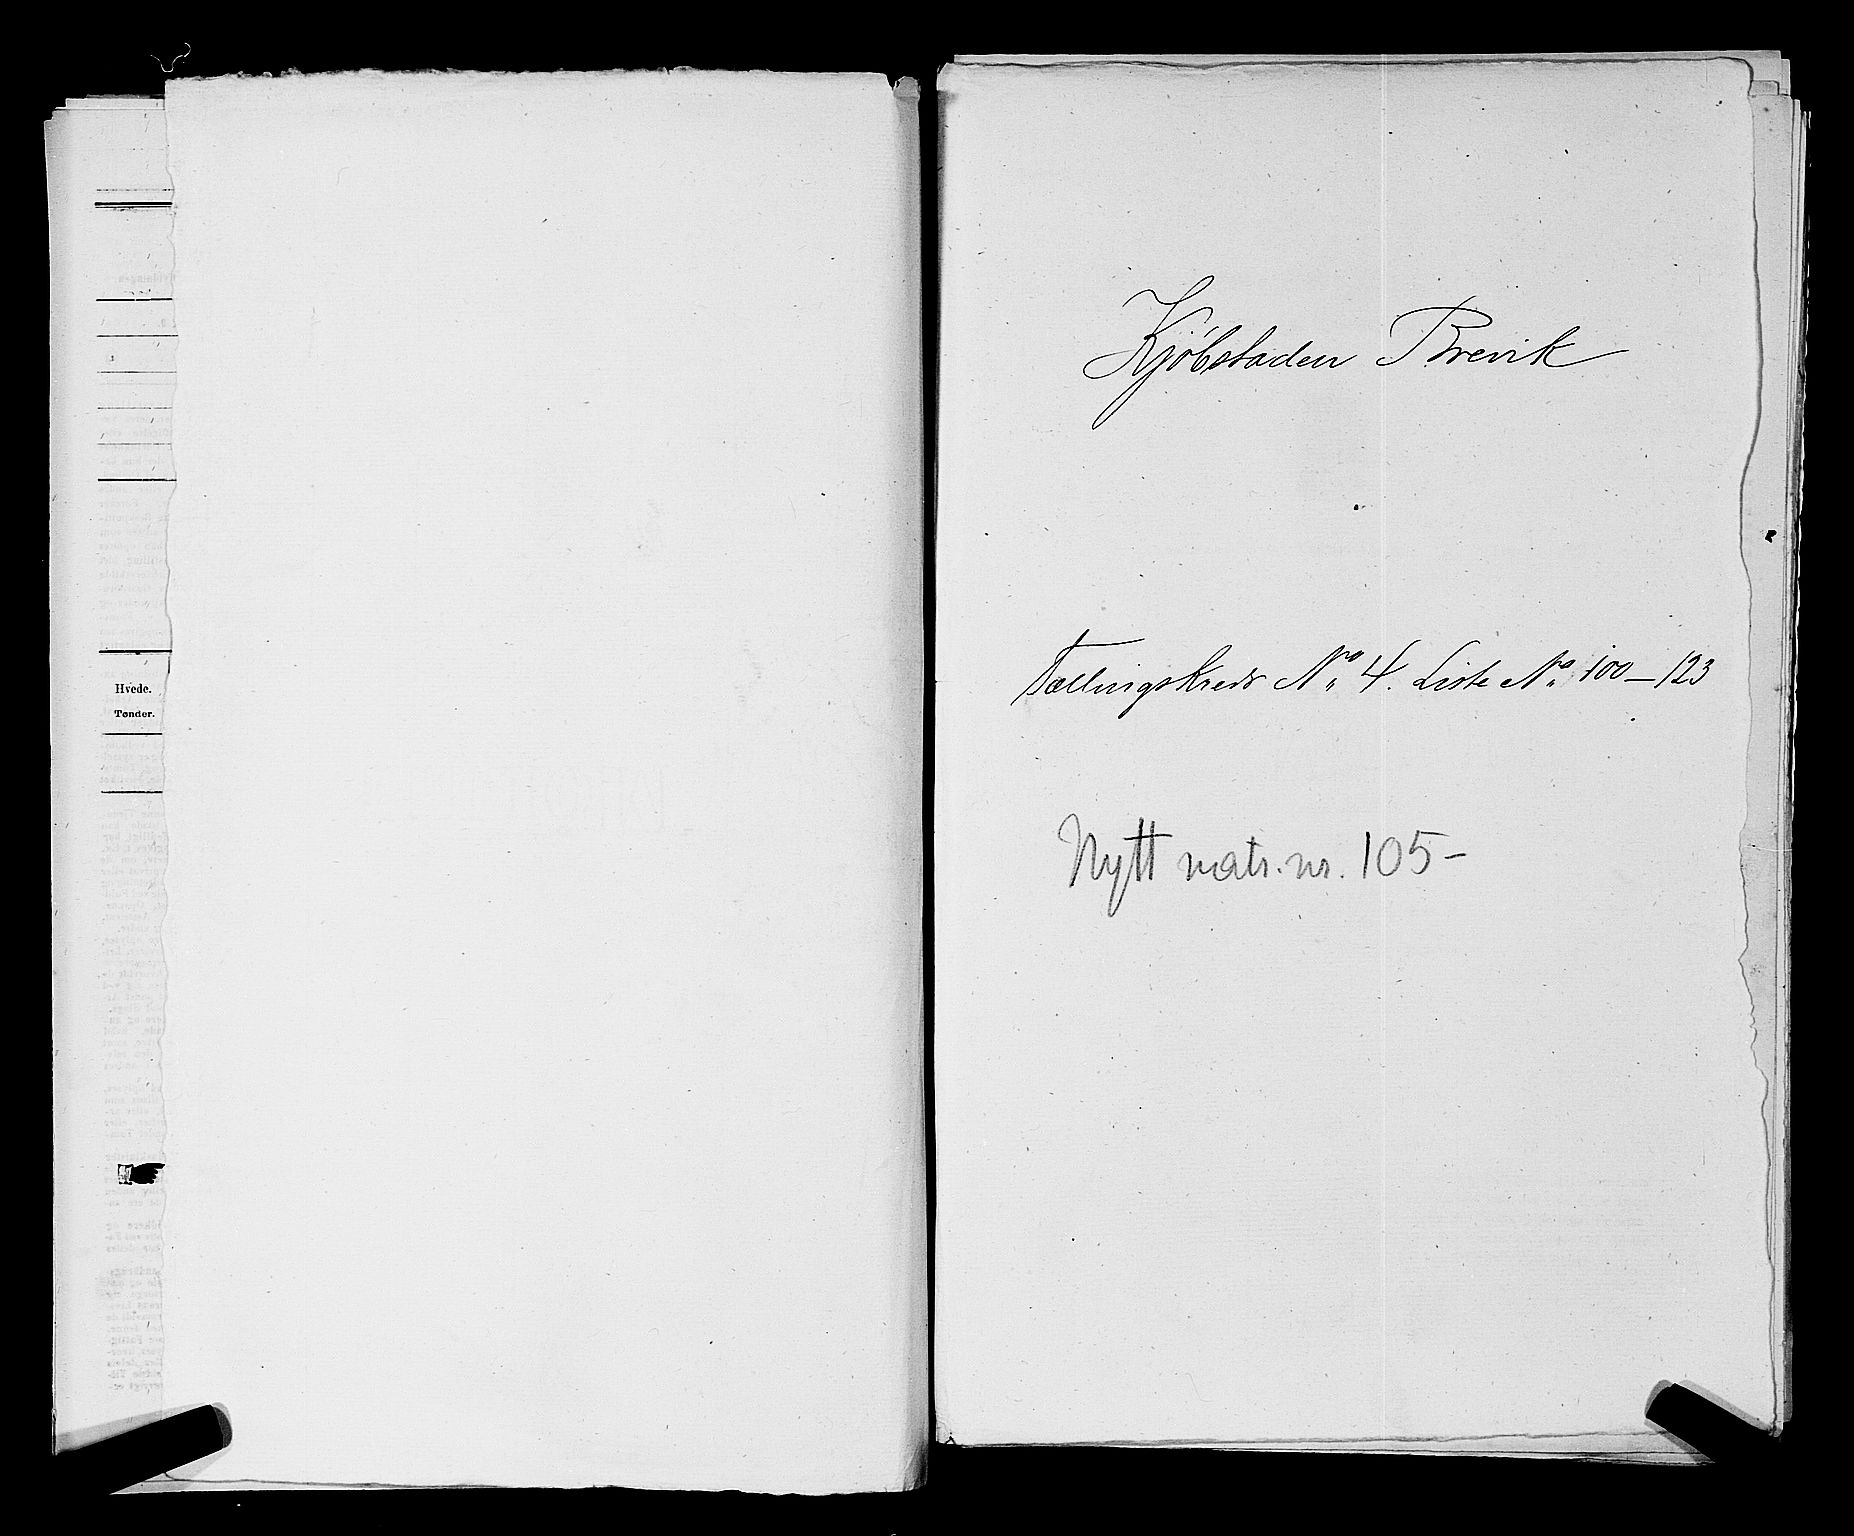 Hvede.
Tønder.
Kjöbstaden Brevik
Tællingskreds No 4. Liste No 100–123
Nytt matr. nr. 105–